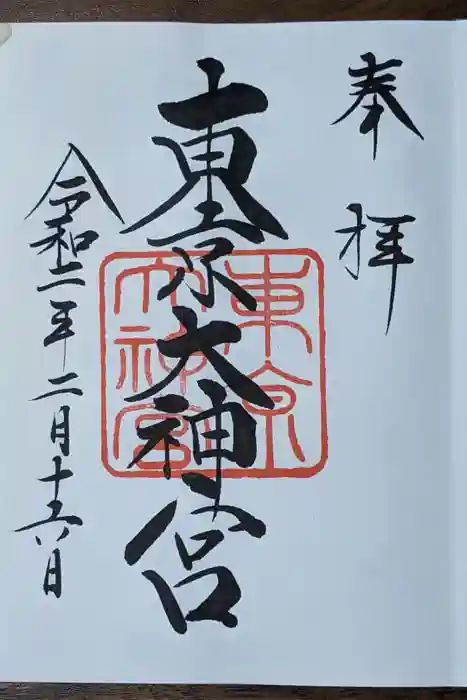 奉拝
東京大神宮
東京大神宮
令和二年二月十六日